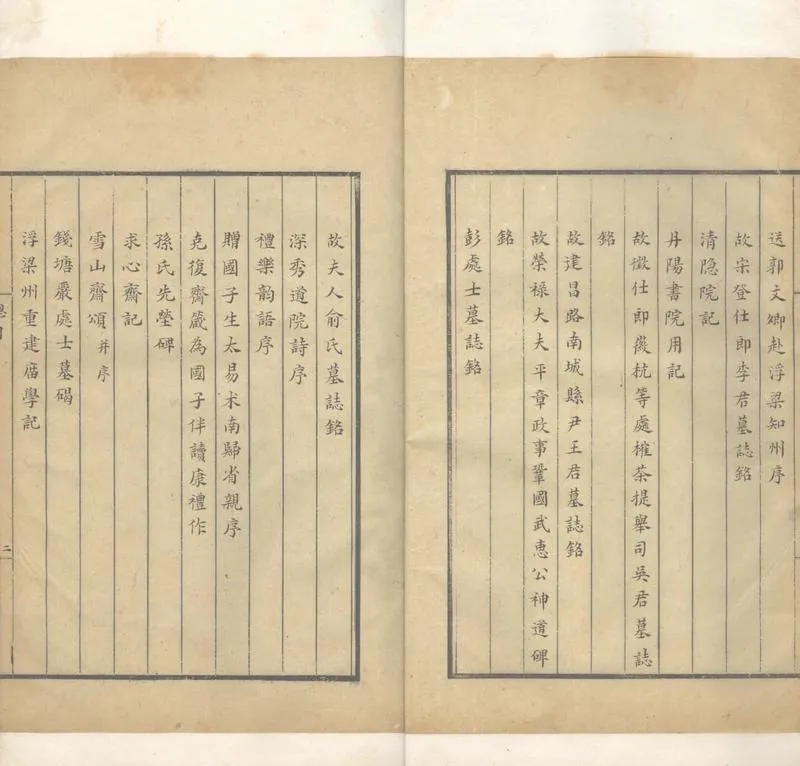 送郭文卿赴浮梁知州序
故宋登仕郎李君墓誌銘
清隐院記
丹陽書院用記
故徵仕郎徽杭等處榷茶提舉司吳君墓誌
銘
故建昌路南城縣尹王君墓誌銘
故榮禄大夫平章政事鞏國武惠公神道碑
銘
彭處士墓誌銘
故夫人俞氏墓誌銘
深秀道院詩序
禮樂韵語序
贈國子生太易术南歸省親序
克復齋箴為國子伴讀康禮作
孫氏先塋碑
求心齋記
雪山齋頌并序
錢塘嚴處士墓碣
浮梁州重建庿學記
目
二